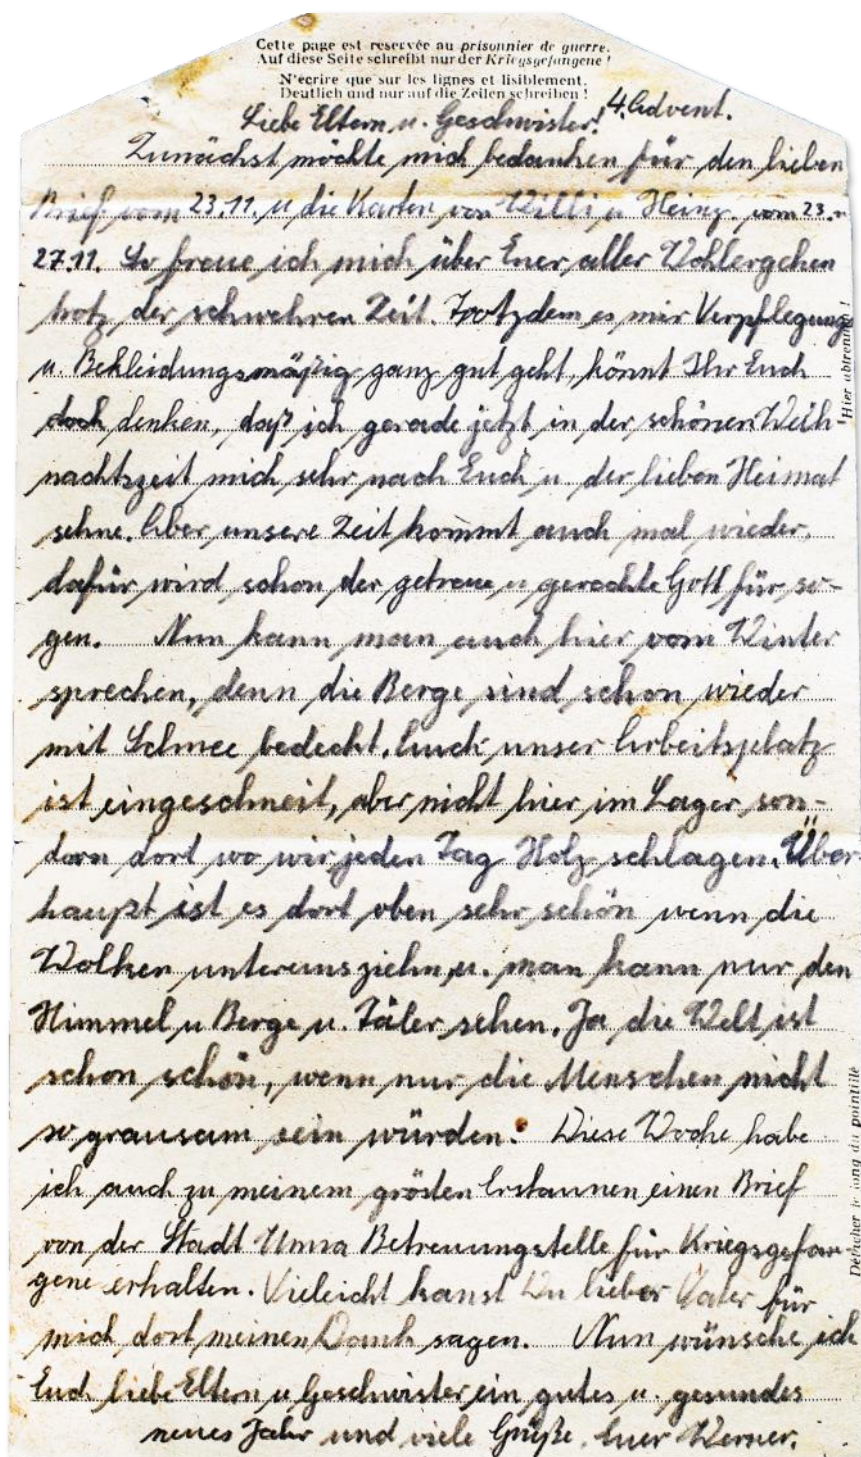 Cette page est reservée au prisonnier de guerre.
Auf diese Seite schreibt nur der Kriegsgefangene!
N'ecrire que sur les lignes et lisiblement.
Deutlich und nur auf die Zeilen schreiben!
4. Advent.
Liebe Eltern u. Geschwister!
Zunächst möchte mich bedanken für den lieben
Brief vom 23.11. u die Karten von Willi u Heinz. vom 23. u
27.11. So freue ich mich über Euer aller Wohlergehen
trotz der schwehren Zeit. Trotzdem es mir Verpflegung
u. Bekleidungsmäßig ganz gut geht, könnt Ihr Euch
doch denken, daß ich gerade jetzt in der schönen Weih-
nachtszeit mich sehr nach Euch u der lieben Heimat
sehne. Aber unsere Zeit kommt auch mal wieder,
dafür wird schon der getreue u gerechte Gott für so-
gen. Nun kann man auch hier vom Winter
sprechen, denn die Berge sind schon wieder
mit Schnee bedeckt. Auch unser Arbeitsplatz
ist eingeschneit, aber nicht hier im Lager son-
dern dort wo wir jeden Tag Holz schlagen. Über-
haupt ist es dort oben sehr schön wenn die
Wolken unteruns ziehn u. man kann nur den
Himmel u Berge u. Täler sehen. Ja die Welt ist
schon schön, wenn nur die Menschen nicht
so grausam sein würden. Diese Woche habe
ich auch zu meinem grösten Erstaunen einen Brief
von der Stadt Unna Betreuungstelle für Kriegsgefan
gene erhalten. Vieleicht kanst Du lieber Vater für
mich dort meinen Dank sagen. Nun wünsche ich
Euch liebe Eltern u Geschwister ein gutes u. gesundes
neues Jahr und viele Grüße. Euer Werner.
Hier abtrennen!
Détacher le long du pointillé